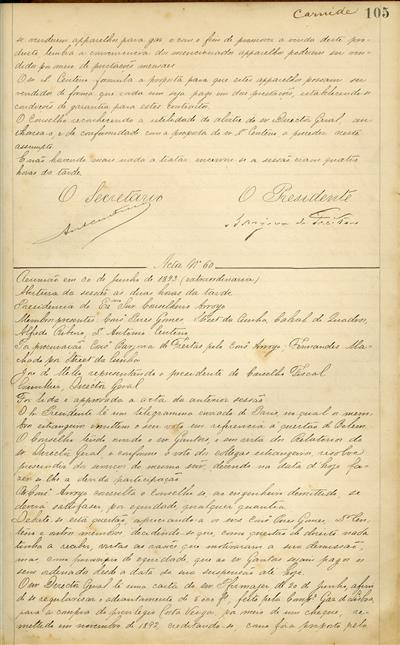 Carnide 105
se venderem apparelhos para gaz e com o fim de promover a venda deste pro-
ducto lembra a conveniencia dos mencionados apparelhos poderem ser ven-
didos por meio de prestações mensaes
O snr S. Centeno formula a proposta para que estes apparelhos possam ser
vendidos de forma que cada um seja pago em dez prestações, estabelecendo-se
condições de garantia para estes contractos.
O Conselho reconhecendo a utilidade do alvitre do snr Director Geral, au-
ctorisa-o, e de conformidade com a proposta do snr S. Centeno a proceder neste
assumpto.
E não havendo mais nada a tratar encerrou-se a sessão eram quatro
horas da tarde.
O Secretario O Presidente
Acta Nº 60
Reunião em 20 de Junho de 1893 (extraordinaria)
Abertura da sessão ás duas horas da tarde
Presidencia do Exmo Snr Conselheiro Arroyo
Membros presentes Exmos Pires Gomes Street da Cunha, Cabral de Quadros,
Alfredo Ribeiro, S. Antonio Centeno
Por procuração Exmo de Freitas pelo Exmo Arroyo, Fernandes Ma-
chado por Street da Cunha
José de Mello representando o presidente do Conselho Fiscal
Director Geral
Foi lida e approvada a acta da anterior sessão
O Snr Presidente lê um telegramma enviado de Paris, no qual os mem-
bros estrangeiros emittem o seu voto em referencia á questão de Belem.
O Conselho tendo ouvido o snr Gautier, e em vista do Relatorio do
snr Director Geral, e conforme o voto dos collegas estrangeiros, resolve
prescindir dos serviços do mesmo snr, devendo na data d'hoje fa-
zer-se-lhe a devida participação
O Exmo Arroyo consulta o Conselho se, ao engenheiro demittido, se
deverá satisfazer, por equidade, qualquer quantia.
Debate-se esta questão, apreciando-a os snrs Exmo Pires Gomes, S. Cen-
teno e outros membros decidindo-se que, como questão de direito nada
tenha a receber, vistas as razões que motivaram a sua demissão,
mas, como principio de equidade, que ao snr Gautier sejam pagos os
seus ordenados desde a data da sua suspensão até hoje.
O snr Director Geral lê uma carta do snr de 20 de Junho, afim
de se regularisar o adeantamento de feito pela Compª Gaz de Lisboa,
para a compra do privilegio Costa Veiga, por meio de um cheque, re-
mettido em novembro de 1892 creditando-se, como fora proposto pelo